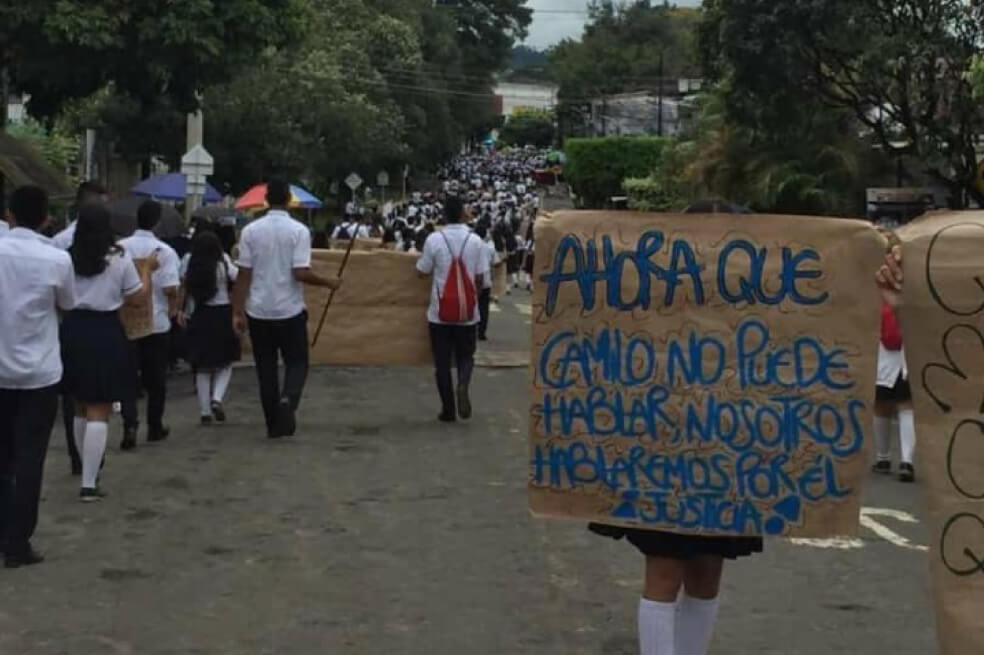 AHORA QUE
CAMILO NO PUEDE
HABLAR, NOSOTROS
HABLAREMOS POR ÉL
¡JUSTICIA!